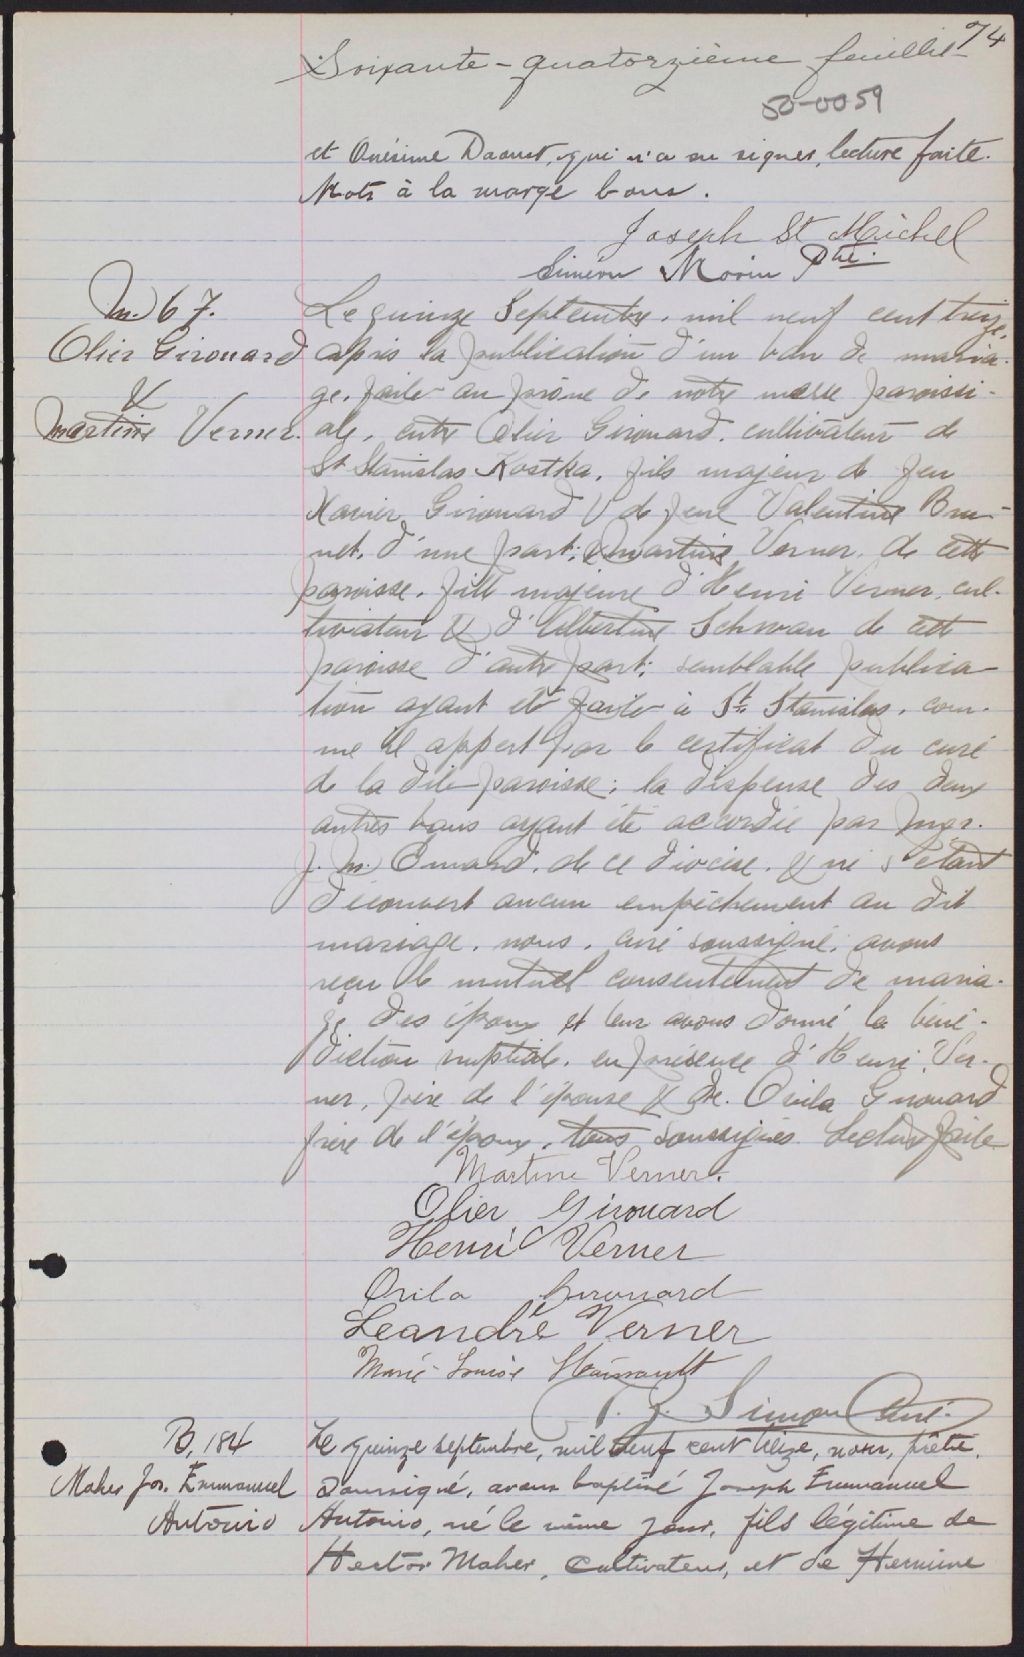 74
Soixante-quatorzième feuillet
50-0059
et Onésime Daoust, qui n'a su signer, lecture faite.
Mots à la marge bons.
Joseph St Michel
Siméon Morin Ptre.
M. 67.
Olier Girouard
&
Martine Verner.
Le quinze Septembre, mil neuf cent treize,
après la publication d'un ban de maria-
ge, faite au prône de notre messe paroissi-
ale, entre Olier Girouard, cultivateur de
St Stanislas Kostka, fils majeur de feu
Xavier Girouard & de feue Valentine Bru-
net, d'une part; & Martine Verner, de cette
paroisse, fille majeure d'Henri Verner, cul-
tivateur & d'Albertine Schwan de cette
paroisse d'autre part; semblable publica-
tion ayant été faite à St. Stanislas, com-
me il appert par le certificat du curé
de la dite paroisse; la dispense des deux
autres bans ayant été accordée par Mgr.
J. M. Emard, de ce diocèse, & ne s'étant
découvert aucun empêchement au dit
mariage, nous, curé soussigné, avons
reçu le mutuel consentement de maria-
ge des époux et leur avons donné la béné-
diction nuptiale, en présence d'Henri Ver-
ner, père de l'épouse & de Ovila Girouard
frère de l'époux, tous soussignés. Lecture faite
Martine Verner.
Olier Girouard
Henri Verner
Ovila Girouard
Leandre Verner
Marie-Louise
Simon Curé.
B. 184
Maher Jos. Emmanuel
Antonio
Le quinze septembre, mil neuf cent treize, nous, prêtre,
soussigné, avons baptisé Joseph Emmanuel
Antonio, né le même jour, fils légitime de
Hector Maher, cultivateur, et de Hermine